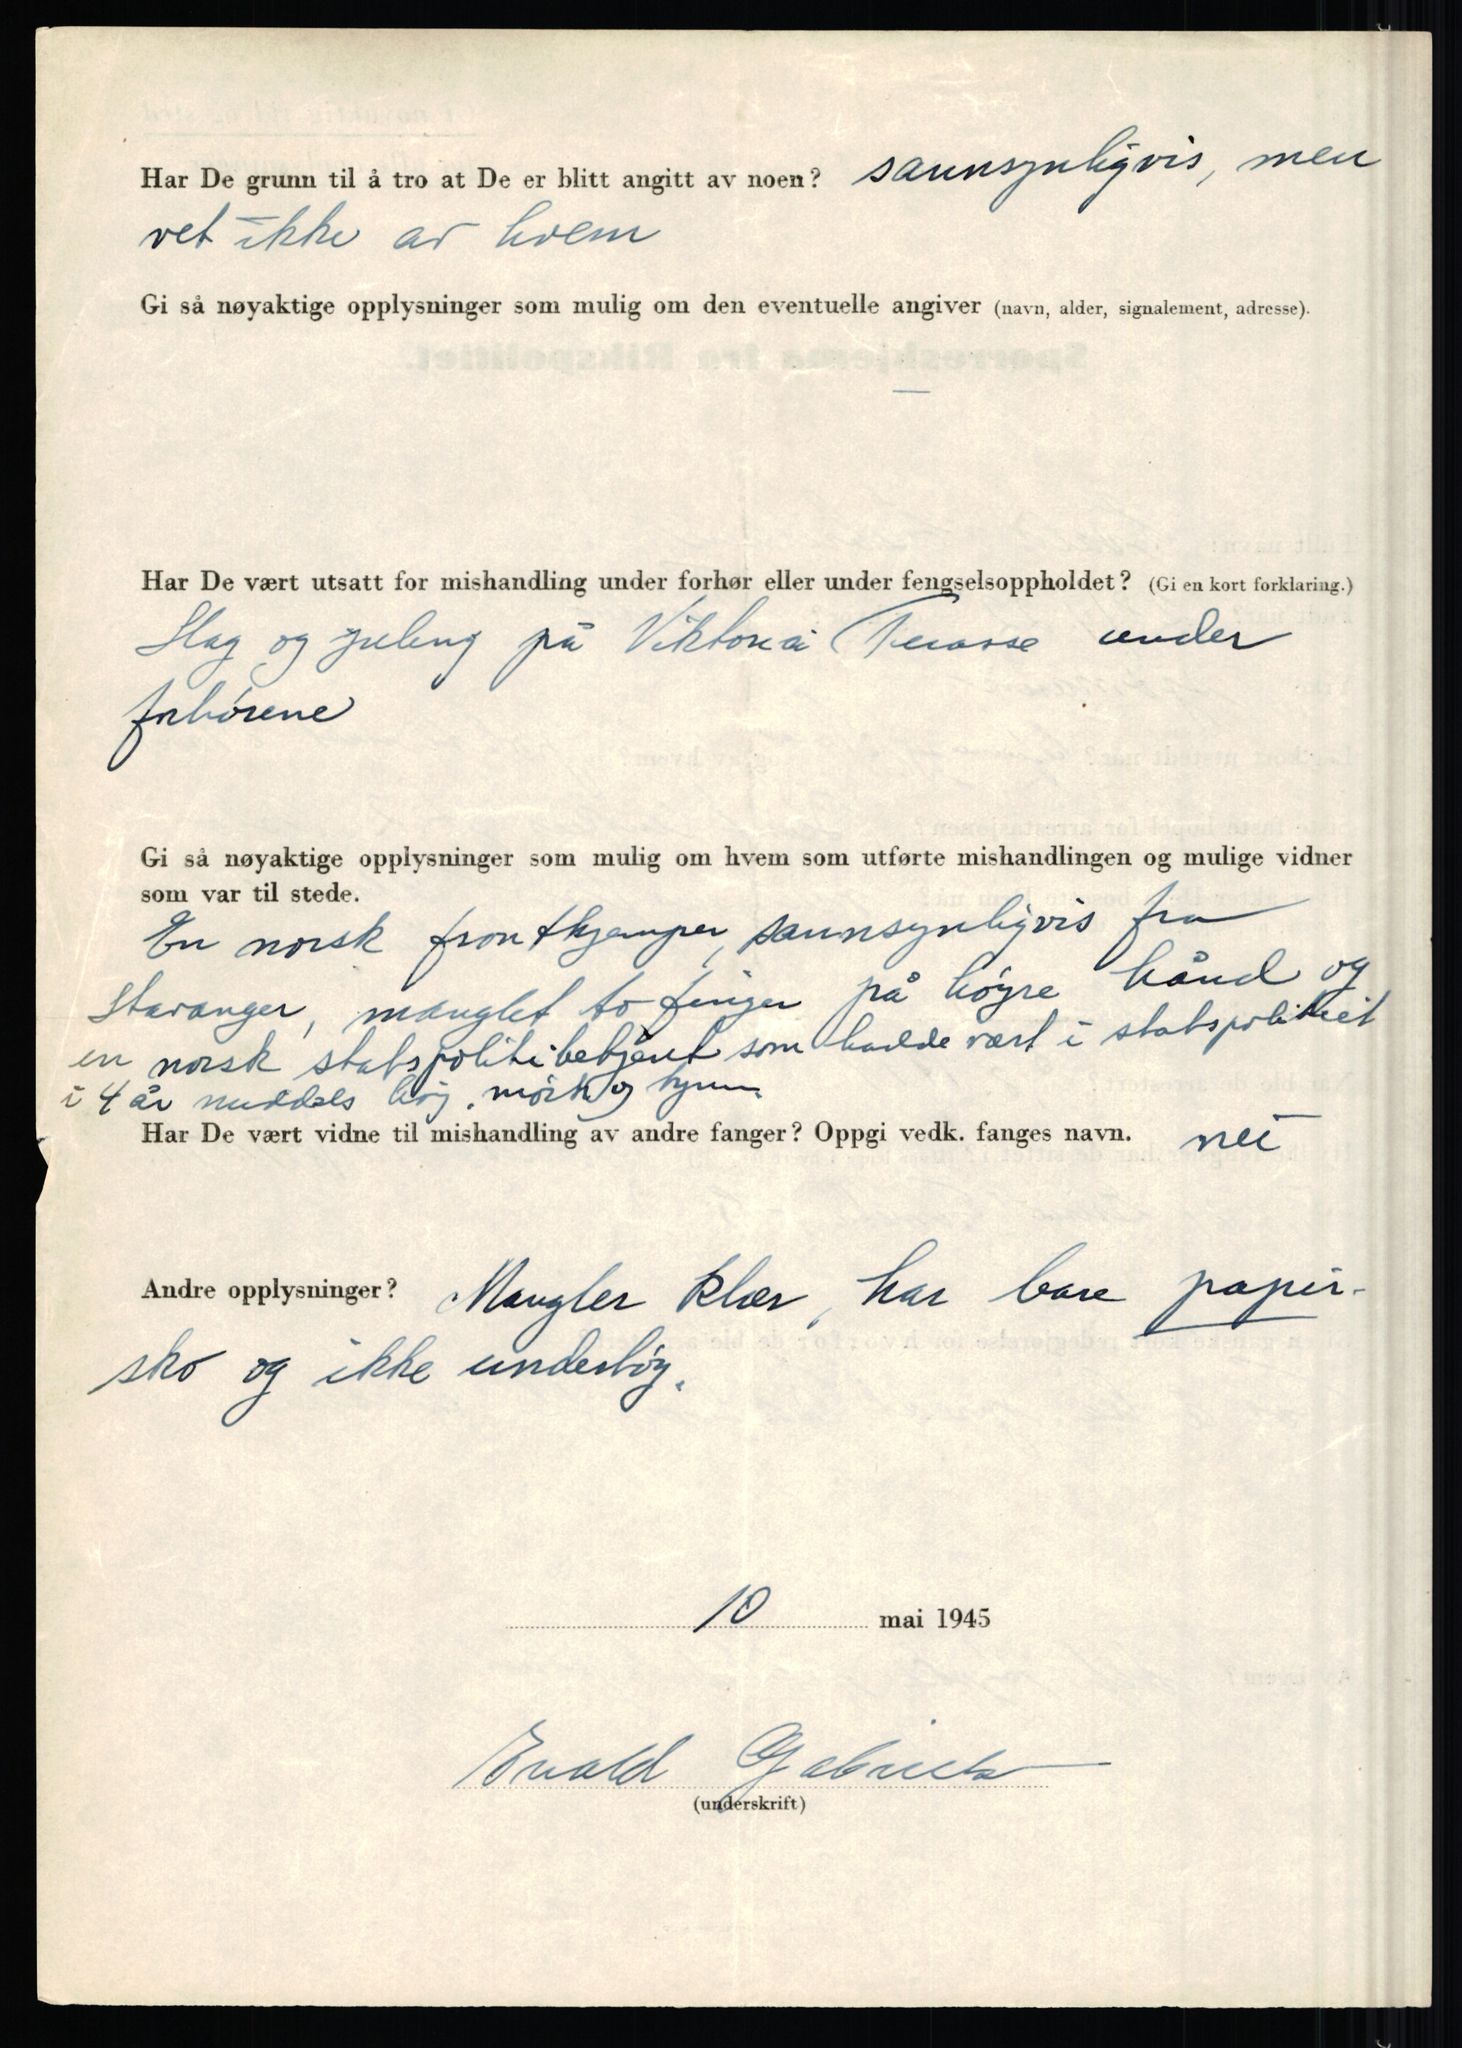 Har De grunn til å tro at De er blitt angitt av noen? sannsynligvis, men
vet ikke av hvem
Gi så nøyaktige opplysninger som mulig om den eventuelle angiver (navn, alder, signalement, adresse).
—
Har De vært utsatt for mishandling under forhør eller under fengselsoppholdet? (Gi en kort forklaring.)
Slag og juling på Viktoria Terasse under
forhörene
Gi så nøyaktige opplysninger som mulig om hvem som utførte mishandlingen og mulige vidner
som var til stede.
En norsk frontkjemper, sannsynligvis fra
Stavanger, manglet to finger på höyre hånd og
en norsk statspolitibetjent som hadde vært i statspolitiet
i 4 år middels höy, mörk og
Har De vært vidne til mishandling av andre fanger? Oppgi vedk. fanges navn. nei
Andre opplysninger? Mangler klær, har bare papir-
sko og ikke undertöy.
10 mai 1945
Evald
(underskrift)